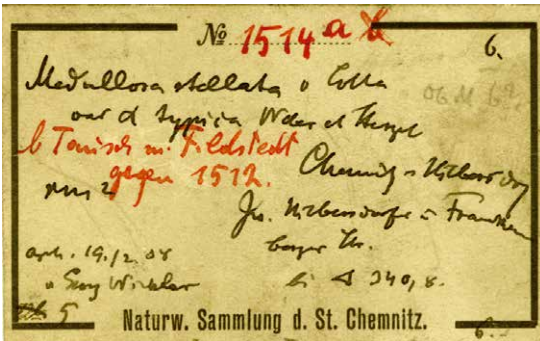 No 1514 a b
6.
Medullosa stellata v Cotta
var α typica Weber et Sterzel
b Tausch m. Feldstedt
gegen 1512.
Chemnitz - Hilbersdorf
Zw. Hilbersdorfer u Franken
berger Str.
19./2. 08
v Georg Winkler
bei 340,8.
5
Naturw. Sammlung d. St. Chemnitz.
6.